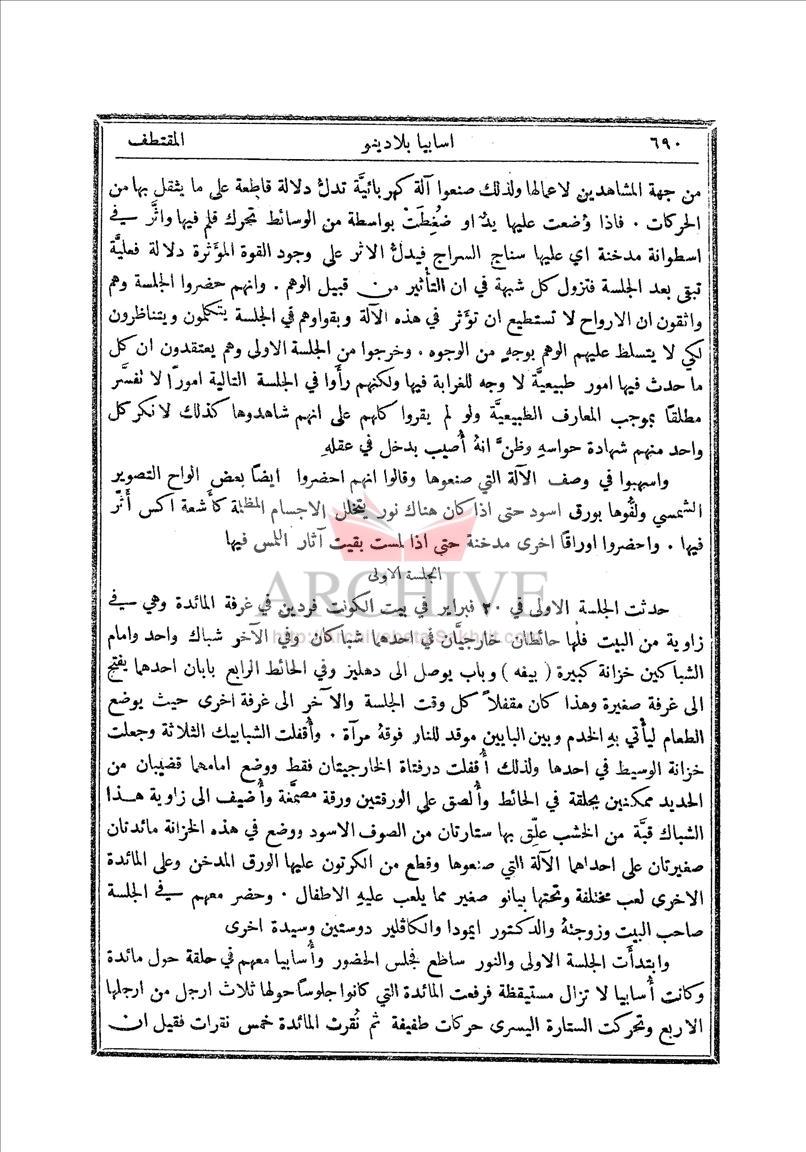 ٦٩٠ اسابيا بلادينو المقتطف
من جهة المشاهدين لاعمالها ولذلك صنعوا آلة كهربائيَّة تدلُّ دلالة قاطعة على ما يثقل بها من
الحركات . فاذا وُضعت عليها يدٌ او ضُغِطَتْ بواسطة من الوسائط تحرك قلم فيها واثَّر في
اسطوانة مدخنة اي عليها سناج السراج فيدلُّ الاثر على وجود القوة المؤثرة دلالة فعليَّة
تبقى بعد الجلسة فتزول كل شبهة في ان التأثير من قبيل الوهم . وانهم حضروا الجلسة وهم
واثقون ان الارواح لا تستطيع ان تؤثر في هذه الآلة وبقواوهم في الجلسة يتكلمون ويتناظرون
لكي لا يتسلط عليهم الوهم بوجهٍ من الوجوه . وخرجوا من الجلسة الاولى وهم يعتقدون ان كل
ما حدث فيها امور طبيعيَّة لا وجه للغرابة فيها ولكنهم رأَوا في الجلسة التالية امورًا لا تفسَّر
مطلقًا بموجب المعارف الطبيعيَّة ولو لم يقروا كلهم على انهم شاهدوها كذلك لانكر كل
واحد منهم شهادة حواسهِ وظنَّ انهُ أُصيب بدخل في عقلهِ
واسهبوا في وصف الآلة التي صنعوها وقالوا انهم احضروا ايضًا بعض الواح التصوير
الشمسي ولفُّوها بورق اسود حتى اذا كان هناك نور يتخلل الاجسام المظلمة كأَشعة اكس أَثَّر
فيها . واحضروا اوراقًا اخرى مدخنة حتى اذا لمست بقيت آثار اللمس فيها
الجلسة الاولى
ARCHIVE
حدثت الجلسة الاولى في ٢٠ فبراير في بيت الكونت فردين في غرفة المائدة وهي في
زاوية من البيت فلها حائطان خارجيَّان في احدهما شباكان وفي الآخر شباك واحد وامام
الشباكين خزانة كبيرة ( بيفه ) وباب يوصل الى دهليز وفي الحائط الرابع بابان احدهما يفتح
الى غرفة صغيرة وهذا كان مقفلاً كل وقت الجلسة والآخر الى غرفة اخرى حيث يوضع
الطعام ليأتي بهِ الخدم وبين البابين موقد للنار فوقهُ مرآة . وأُقفلت الشبابيك الثلاثة وجعلت
خزانة الوسيط في احدها ولذلك أُقفلت درفتاهُ الخارجيتان فقط ووضع امامهما قضيبان من
الحديد ممكنين بحلقة في الحائط وأُلصق على الورقتين ورقة مصمَّغة وأُضيف الى زاوية هذا
الشباك قبَّة من الخشب علِّق بها ستارتان من الصوف الاسود ووضع في هذه الخزانة مائدتان
صغيرتان على احداهما الآلة التي صنعوها وقطع من الكرتون عليها الورق المدخن وعلى المائدة
الاخرى لعب مختلفة وتحتها بيانو صغير مما يلعب عليهِ الاطفال . وحضر معهم في الجلسة
صاحب البيت وزوجتهُ والدكتور ايمودا والكاڤلير دوستين وسيدة اخرى
وابتدأَت الجلسة الاولى والنور ساطع فجلس الحضور وأُسابيا معهم في حلقة حول مائدة
وكانت أُسابيا لا تزال مستيقظة فرفعت المائدة التي كانوا جلوسًا حولها ثلاث ارجل من ارجلها
الاربع وتحركت الستارة اليسرى حركات طفيفة ثم نُقرت المائدة خمس نقرات فقيل ان